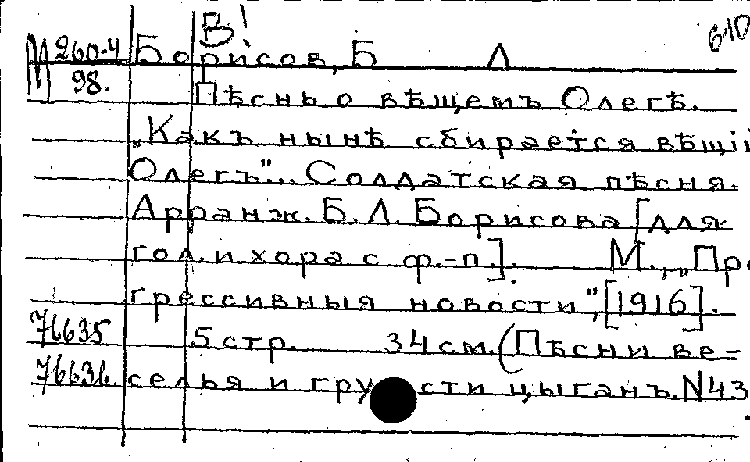 В! 610
М 260-4 Борисов, Б Л
98. Пѣснь о вѣщемъ Олегѣ.
„Какъ нынѣ сбирается вѣщій
Олегъ". Солдатская пѣсня.
Арранж. Б. Л. Борисова [для
гол. и хора с ф.-п.]. М., „Про
грессивныя новости", [1916].
76635 5 стр. 34 см. (Пѣсни ве-
76636 селья и грусти цыганъ. N43